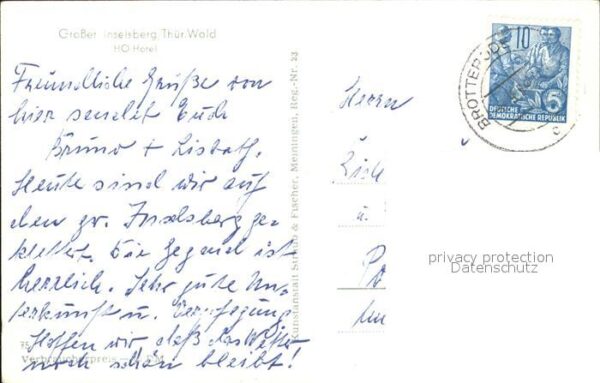 Großer Inselsberg Thür. Wald
HO Hotel
Freundliche Grüße von
hier sendet Euch
Bruno + Lisbeth.
Heute sind wir auf
den gr. Inselsberg ge-
klettert. Die Gegend ist
herrlich. Sehr gute Un-
terkunft u. Verpflegung
Hoffen wir, daß das Wetter
noch schön bleibt!
Verbraucherpreis
Kunstanstalt Straub & Fischer, Meiningen, Reg.-Nr. 23
10
DEUTSCHE
DEMOKRATISCHE REPUBLIK
5
BROTTERODE
c
Herrn
u.
privacy protection
Datenschutz